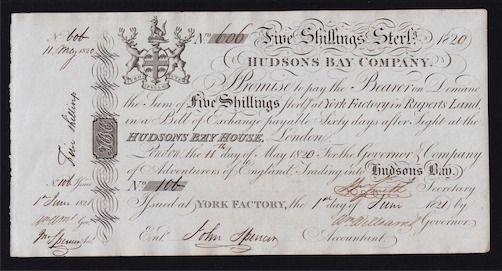 No. 606
11 May 1820
No. 606
Five Shillings Sterl.g
1820
HUDSONS BAY COMPANY.
Promise to pay the Bearer on Demand
the Sum of Five Shillings Sterl.g at York Factory in Ruperts Land,
in a Bill of Exchange payable Sixty days after Sight at the
HUDSONS BAY HOUSE, London.
London, the 11th day of May 1820 For the Governor & Company
of Adventurers of England Trading into Hudsons Bay.
No. 106
Secretary
Issued at YORK FACTORY, the 1st day of June 1821
Wm Williams Governor
Ent.d John Spencer Accountant.
Five Shillings
No. 106
1st June 1821
Gov.
Jn Spencer